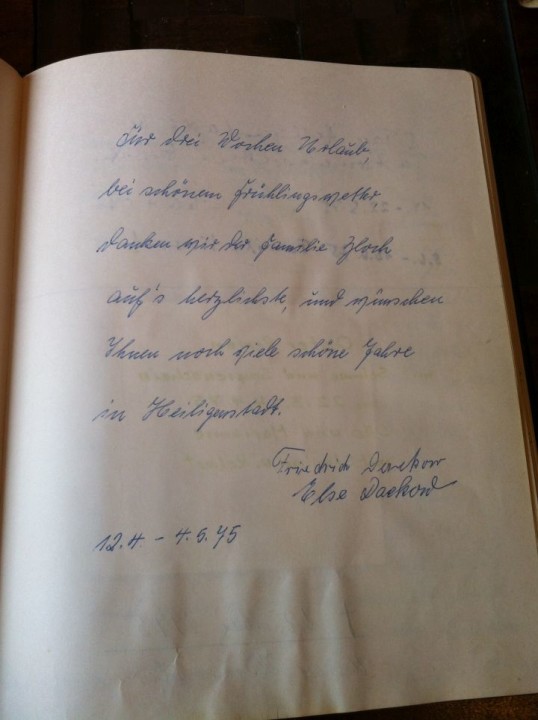 Für drei Wochen Urlaub,
bei schönem Frühlingswetter
danken wir der Familie Zloch
auf's herzlichste, und wünschen
Ihnen noch viele schöne Jahre
in Heiligenstadt.
Friedrich
Else
12.4. - 4.5.75